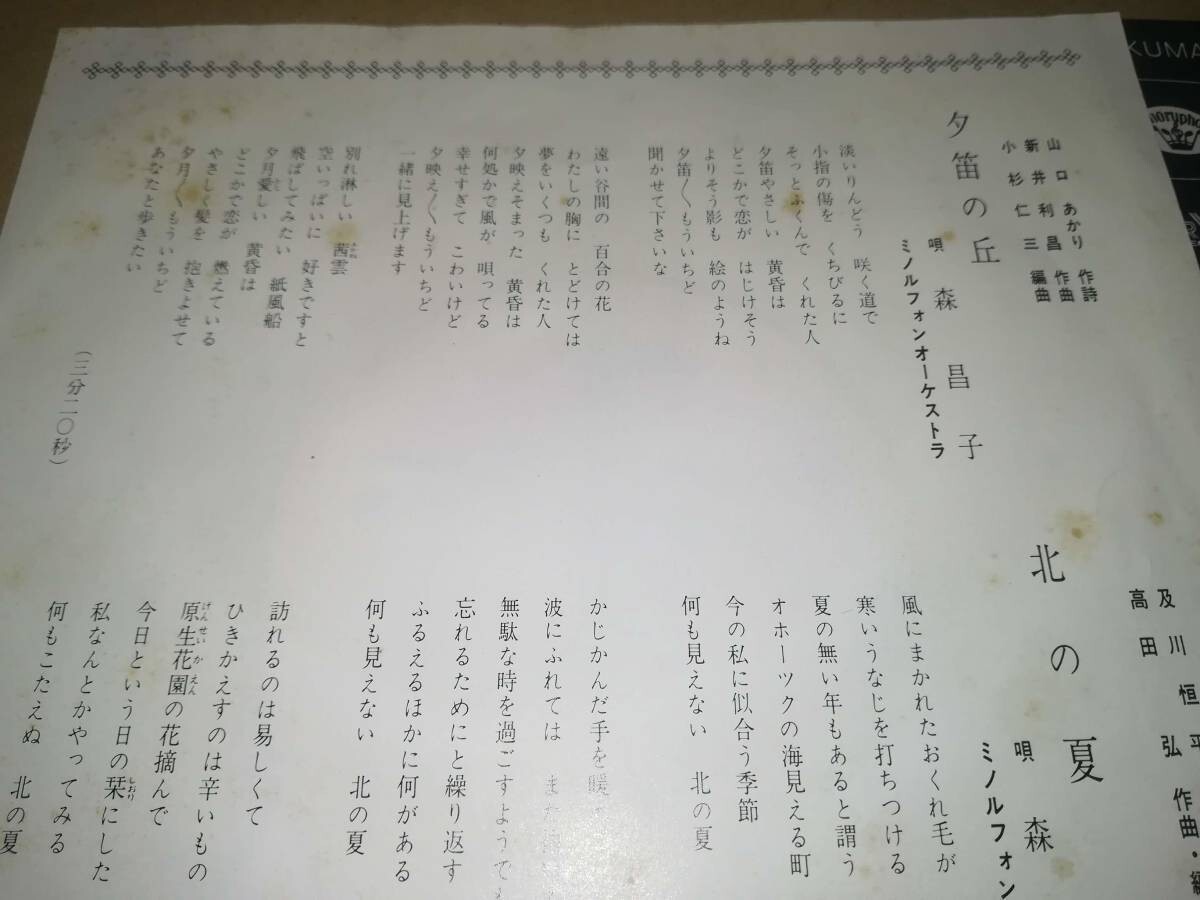 夕笛の丘
山口あかり 作詩
新井利昌 作曲
小杉仁三 編曲
唄 森昌子
ミノルフォンオーケストラ
淡いりんどう 咲く道で
小指の傷を くちびるに
そっとふくんで くれた人
夕笛やさしい 黄昏は
どこかで恋が はじけそう
よりそう影も 絵のようね
夕笛〳〵もういちど
聞かせて下さいな
遠い谷間の 百合の花
わたしの胸に とどけては
夢をいくつも くれた人
夕映えそまった 黄昏は
何処かで風が 唄ってる
幸せすぎて こわいけど
夕映え〳〵もういちど
一緒に見上げます
別れ淋しい 茜雲
空いっぱいに 好きですと
飛ばしてみたい 紙風船
夕月愛しい 黄昏は
どこかで恋が 燃えている
やさしく髪を 抱きよせて
夕月〳〵もういちど
あなたと歩きたい
(三分二〇秒)
北の夏
及川恒平
高田弘 作曲・編
唄 森
ミノルフォン
風にまかれたおくれ毛が
寒いうなじを打ちつける
夏の無い年もあると謂う
オホーツクの海見える町
今の私に似合う季節
何も見えない 北の夏
かじかんだ手を暖
波にふれては また
無駄な時を過ごすようで
忘れるためにと繰り返す
ふるえるほかに何がある
何も見えない 北の夏
訪れるのは易しくて
ひきかえすのは辛いもの
原生花園の花摘んで
今日という日の栞にした
私なんとかやってみる
何もこたえぬ 北の夏
KUMA